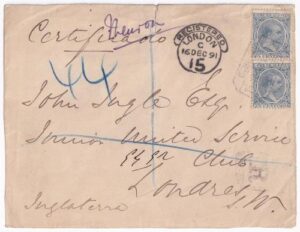 Certificado
REGISTERED
LONDON
C
16 DEC 91
15
44
John Ingle Esq.
Junior United Service
Club
Londres
S.W.
Inglaterra